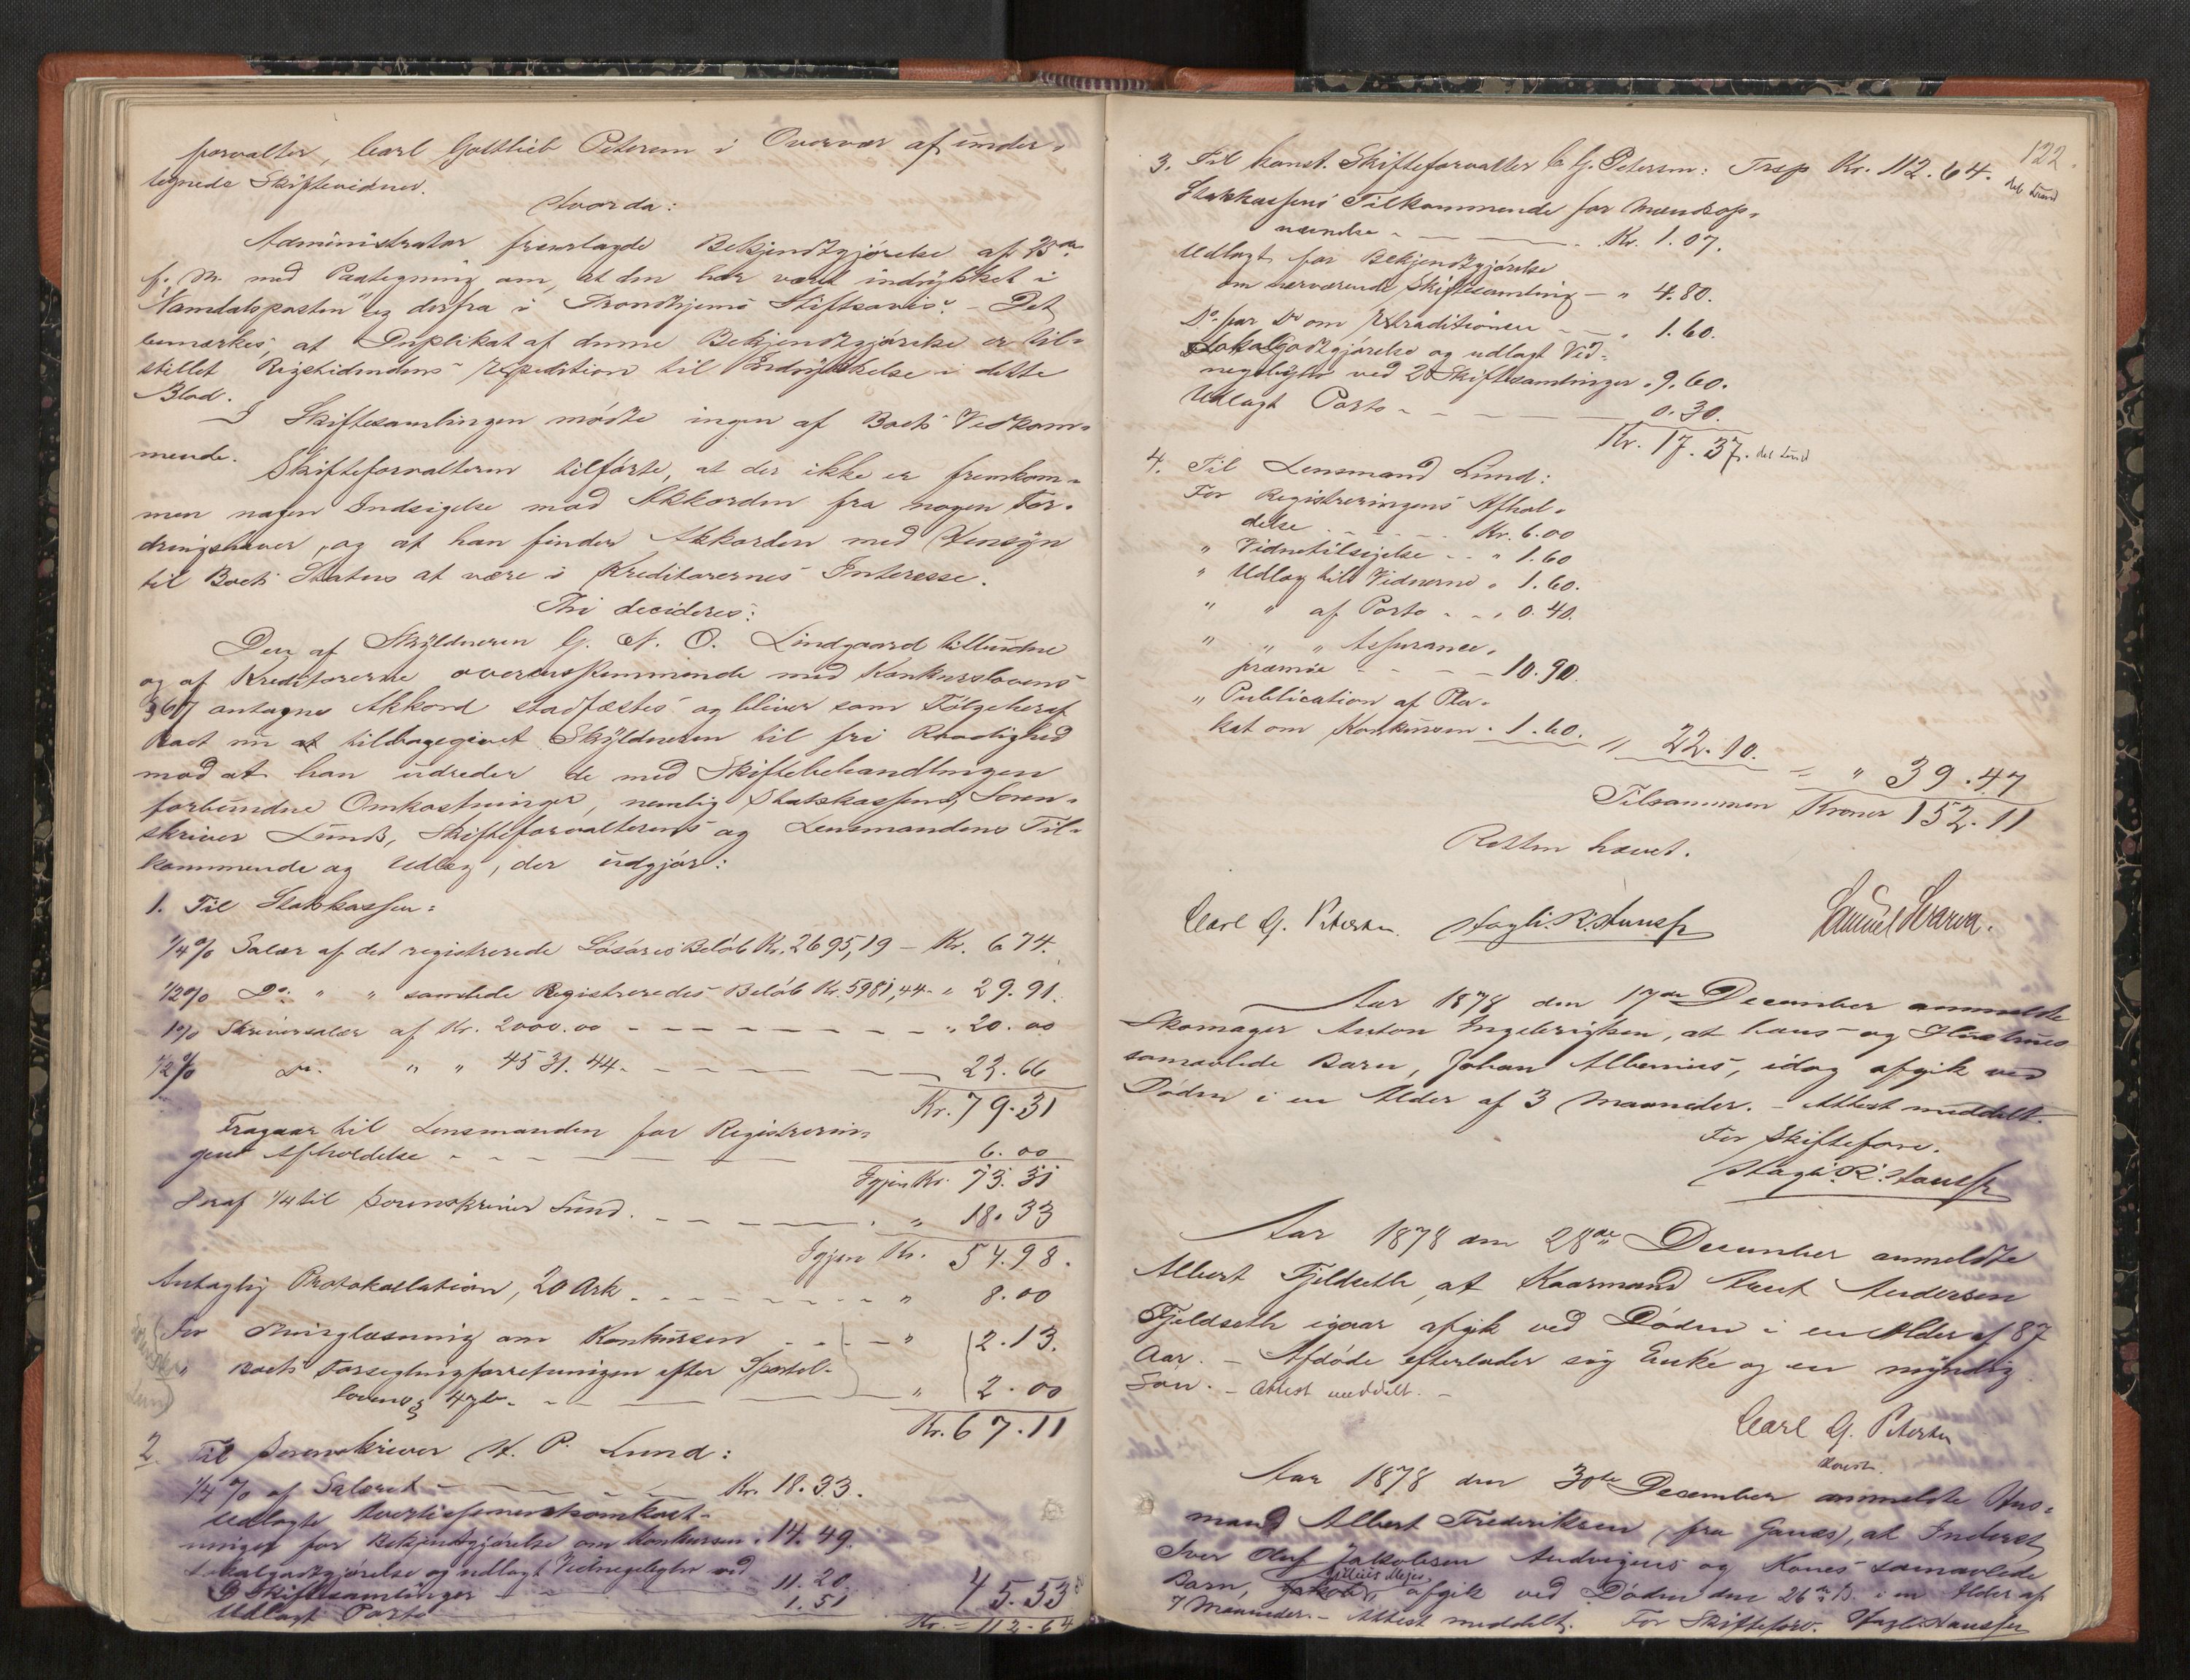 forvalter, Carl Gottlieb Petersen i Overvær af under-
tegnede Skiftevidner.
Hvorda:
Administrator fremlagde Bekjendtgjørelse af 23de
f. M. med Paategning om, at den har været indrykket i
"Namdalsposten" og derfra i Trondhjems Stiftsavis. - Det
bemærkes, at Duplikat af denne Bekjendtgjørelse er til-
stillet Rigstidendens Expedition til Indrykkelse i dette
Blad.
I Skiftesamlingen mødte ingen af Boets Vedkom-
mende.
Skifteforvalteren tilførte, at der ikke er fremkom-
men nogen Indsigelse mod Akkorden fra nogen For-
dringshaver, og at han finder Akkorden med Hensyn
til Boets Status at være i Kreditorernes Interesse.
Thi decideres:
Den af Skyldneren G. A. O. Lindgaard tilbudne
og af Kreditorerne overensstemmende med Konkurslovens
§ 67 antagne Akkord stadfæstes og bliver som Følge heraf
Boet nu at tilbagegivet Skyldneren til fri Raadighed
mod at han udreder de med Skiftebehandlingen
forbundne Omkostninger, nemlig Statskassens, Soren-
skriver Lunds, Skifteforvalterens og Lensmandens Til-
kommende og Udlæg, der udgjør:
1. Til Statskassen:
1/4 % Salær af det registrerede Løsøres Beløb Kr. 2695,19 - Kr. 6.74.
1/2 % Do. " " samtlede Registreredes Beløb Kr. 5981,44 - " 29.91.
1 % Skriversalær af Kr. 2000.00 - - - - " 20.00
1/2 % Do. " " 4531.44. - - - - 22.66
Kr. 79.31
Fragaar til Lensmanden for Registrerin-
gens Afholdelse - - - 6.00
Igjen Kr. 73.31
Heraf 1/4 til Sorenskriver Lund. - - - " 18.33
Igjen Kr. 54.98.
Antagelig Protokollation, 20 Ark - - - " 8.00
For Thinglæsning om Konkursen - - " 2.13.
" Boets Forseglingsforretningen efter Sportel-
lovens § 47 b. - - - " 2.00
Kr. 67.11
2. Til Sorenskriver H. P. Lund:
1/4 % af Salæret - - - Kr. 18.33.
Udlagte Avertissementsomkost-
ninger for Bekjendtgjørelse om Konkursen . 14.49.
Lokalgodtgjørelse og udlagt Vidnegebyhr ved
Skiftesamlinger - - 11.20.
Udlagt Porto - - 1.51
45.53
Kr. 112.64
122.
3. Til konst. Skifteforvalter C. G. Petersen: Trsp Kr. 112.64. det. Lund
Statskassens Tilkommende for Mændsop-
nævnelse - - - Kr. 1.07.
Udlagt for Bekjendtgjørelse
om nærværende Skiftesamling - " 4.80.
Do. for Do om Extraditionen - - . 1.60.
Lokalgodtgjørelse og udlagt Vid-
negebyhr ved 2 Skiftesamlinger . 9.60.
Udlagt Porto - - - 0.30.
Kr. 17.37. det Lund
4. Til Lensmand Lund:
For Registreringens Afhol-
delse - - - Kr. 6.00
" Vidnetilsigelse - - " 1.60
" Udlæg til Vidnerne . 1.60.
" " af Porto - - . 0.40.
" " " Assurance-
præmie - - - 10.90.
" Publication af Pla-
kat om Konkursen . 1.60. " 22.10. - " 39.47
Tilsammen Kroner 152.11
Retten hævet.
Carl G. Petersen. Hagb. R. Hanssen Samuel Skarva.
Aar 1878 den 17de December anmeldte
Skomager Anton Ingebrigtsen, at hans og Hustrues
samavlede Barn, Johan Albenius, idag afgik ved
Døden i en Alder af 3 Maaneder. - Attest meddelt.
For Skifteforv.
Hagb. R. Hanssen
Aar 1878 den 28de December anmeldte
Albert Fjeldseth, at Kaarmand Arnt Andersen
Fjeldseth igaar afgik ved Døden i en Alder af 87
Aar. - Afdøde efterlader sig Enke og en myndig
Søn. - Attest meddelt. -
Carl G. Petersen
konst.
Aar 1878 den 30te December anmeldte Hus-
mand Albert Frederiksen (fra Ganæs), at Inderst
Iver Oluf Jakobsen Andvigens og Kones samavlede
Barn, Jakob, afgik ved Døden den 26de ds. i en Alder af
7 Maaneder. - Attest meddelt. For Skifteforv. Hagb. Hanssen